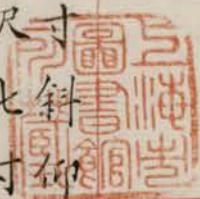 上海市
圖書館
寸斜仰
尺七寸